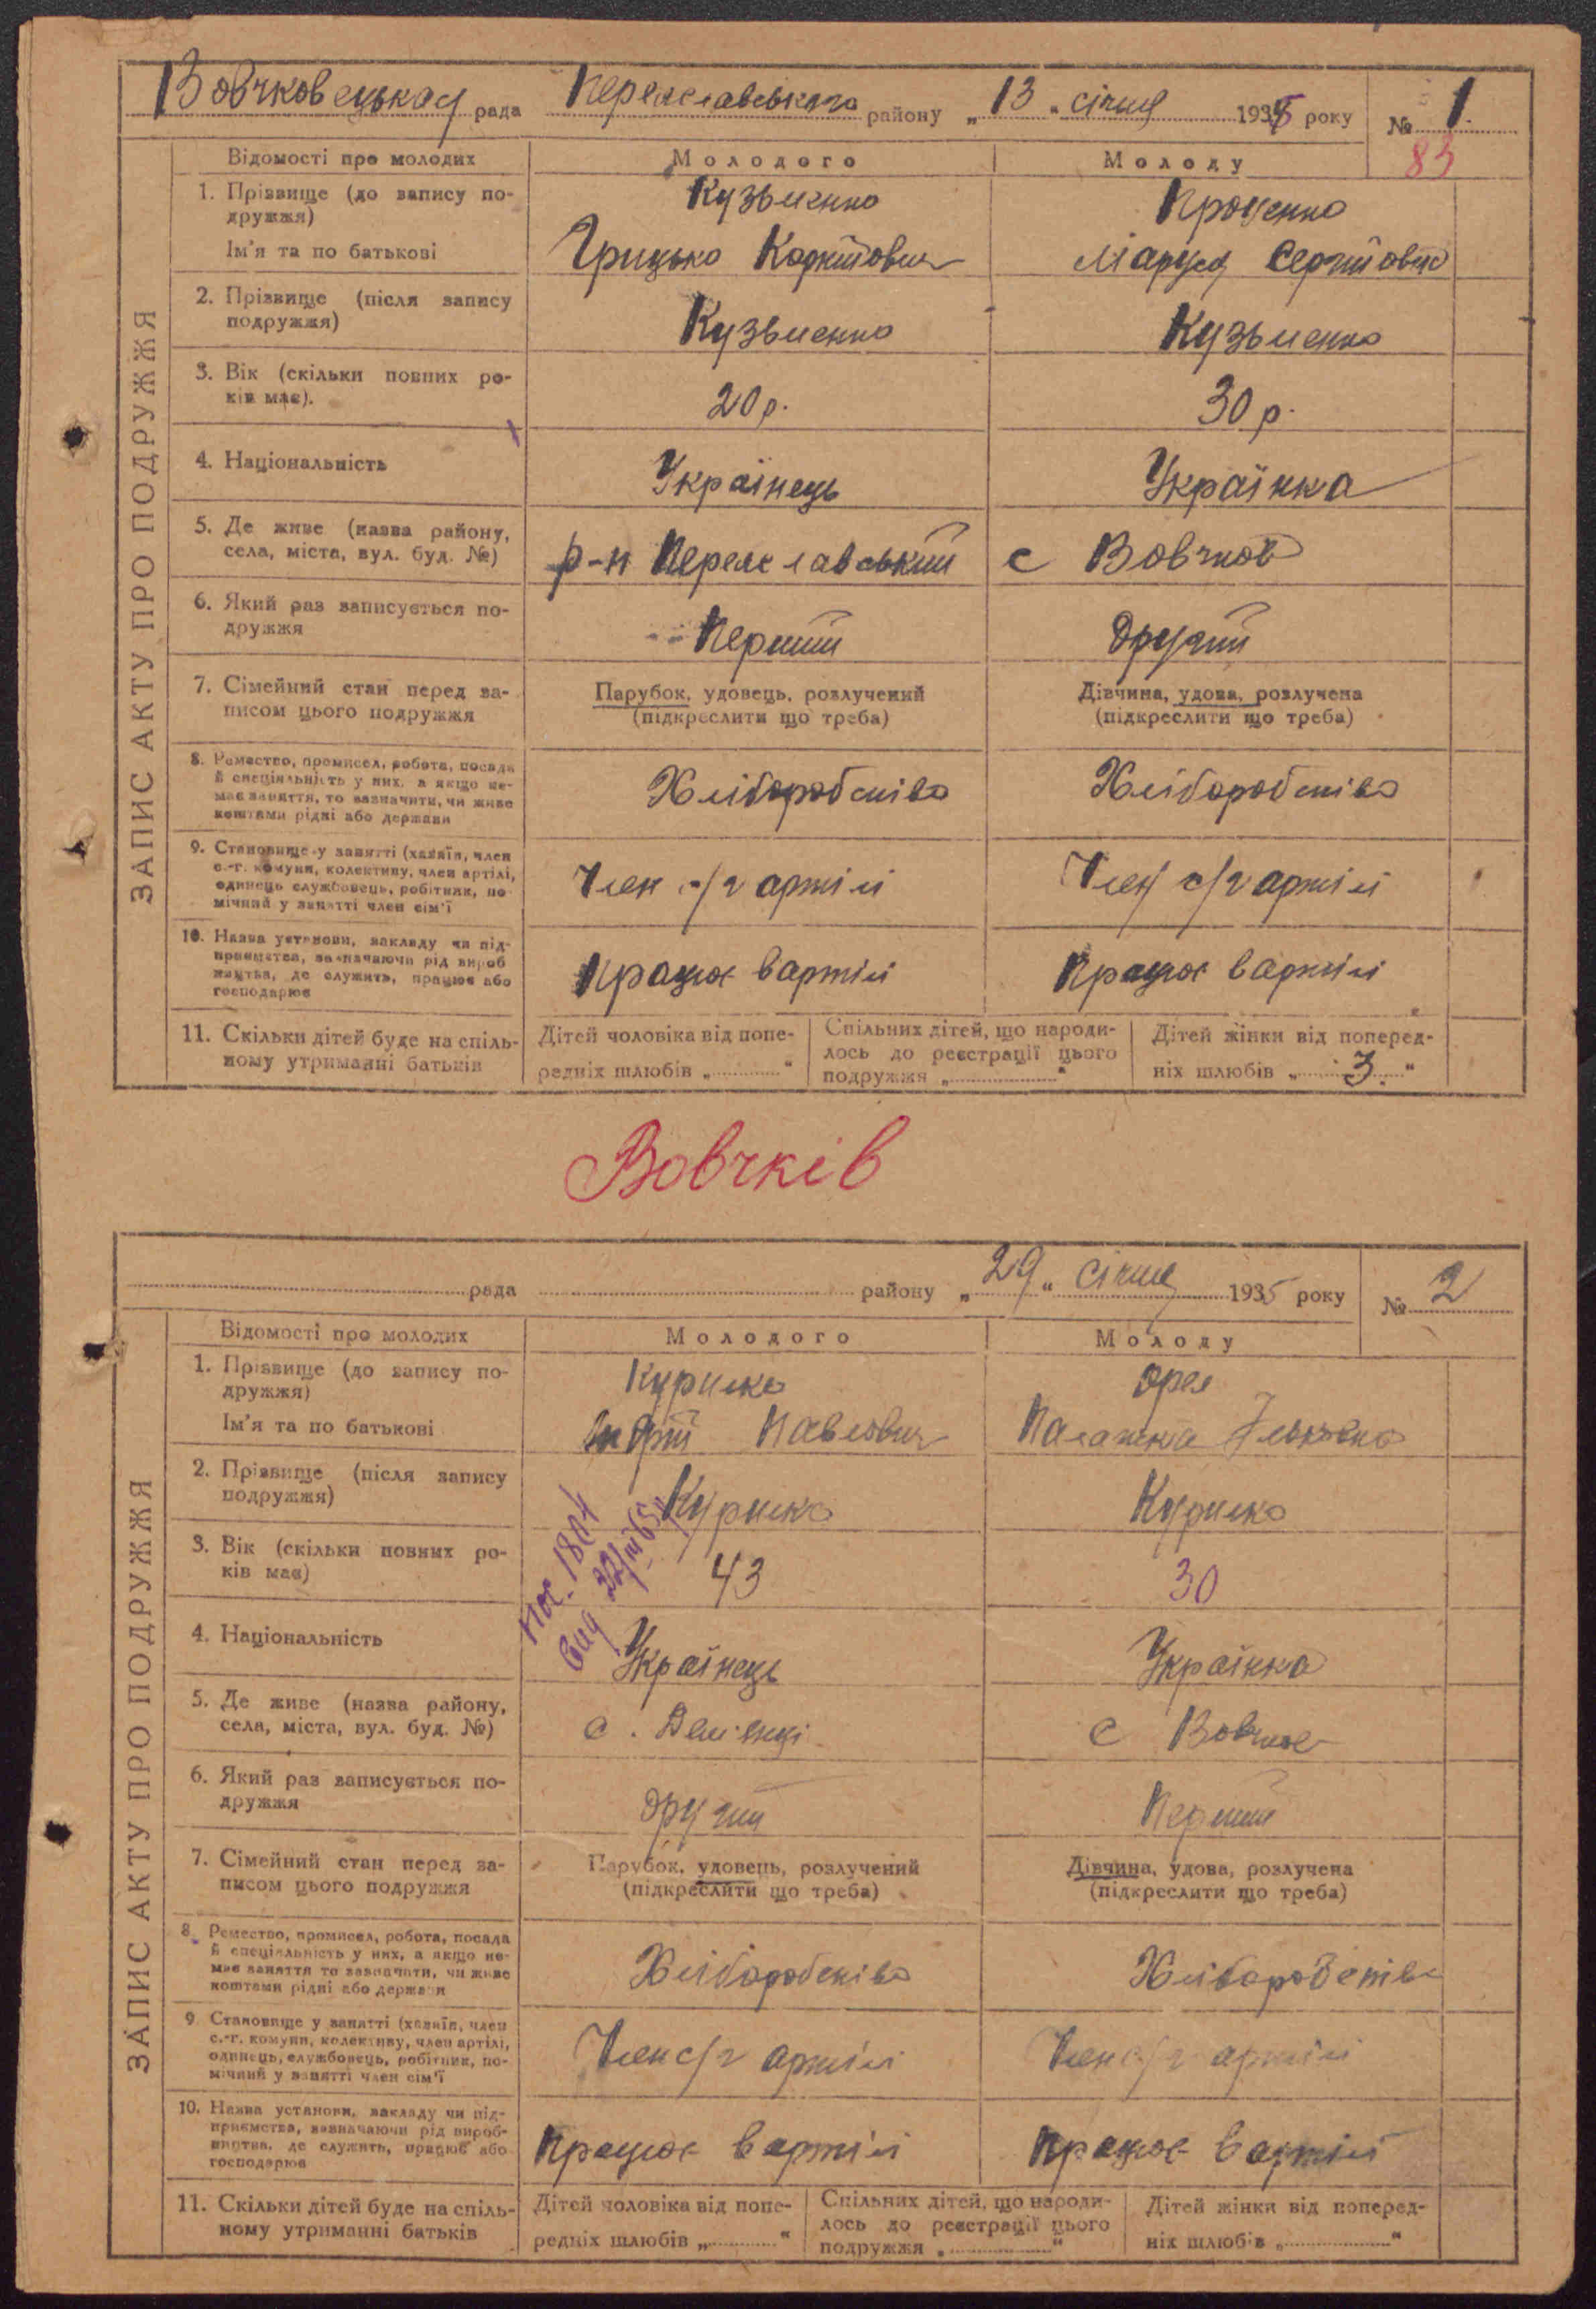 Вовчковецькая рада Переяславського району „13" січня 1935 року № 1.
83
ЗАПИС АКТУ ПРО ПОДРУЖЖЯ
Відомості про молодих Молодого Молоду
1. Прізвище (до запису по-
дружжя) Кузьменко Проценко
Ім'я та по батькові Грицько Маруся
2. Прізвище (після запису
подружжя) Кузьменко Кузьменко
3. Вік (скільки повних ро-
ків має). 20 р. 30 р.
4. Національність Українець Українка
5. Де живе (назва району,
села, міста, вул. буд. №) р-н Переяславський с Вовчков
6. Який раз записується по-
дружжя Перший Другий
7. Сімейний стан перед за-
писом цього подружжя
Парубок, удовець, розлучений
(підкреслити що треба)
Дівчина, удова, розлучена
(підкреслити що треба)
8. Ремество, промисел, робота, посада
й спеціяльність у них, а якщо не-
має заняття, то зазначити, чи живе
коштами рідні або держави
Хліборобство Хліборобство
9. Становище у занятті (хазяїн, член
с.-г. комуни, колективу, член артілі,
одинець службовець, робітник, по-
мічний у занятті член сім'ї
Член с/г артілі Член с/г артілі
10. Назва установи, закладу чи під-
приємства, зазначаючи рід вироб
ництва, де служить, працює або
господарює
Працює в артілі Працює в артілі
11. Скільки дітей буде на спіль-
ному утриманні батьків
Дітей чоловіка від попе-
редніх шлюбів „ "
Спільних дітей, що народи-
лось до реєстрації цього
подружжя „ "
Дітей жінки від поперед-
ніх шлюбів „ 3. "
Вовчків
рада району „29" січня 1935 року № 2
ЗАПИС АКТУ ПРО ПОДРУЖЖЯ
Відомості про молодих Молодого Молоду
1. Прізвище (до запису по-
дружжя)
Ім'я та по батькові Павлович Палажка Ільковна
2. Прізвище (після запису
подружжя)
3. Вік (скільки повних ро-
ків має) 43 30
4. Національність Українець Українка
5. Де живе (назва району,
села, міста, вул. буд. №) с. Демʼянці с Вовчков
6. Який раз записується по-
дружжя Другий Перший
7. Сімейний стан перед за-
писом цього подружжя
Парубок, удовець, розлучений
(підкреслити що треба)
Дівчина, удова, розлучена
(підкреслити що треба)
8. Ремество, промисел, робота, посада
й спеціяльність у них, а якщо не-
має заняття то зазначити, чи живе
коштами рідні або держави
Хліборобство Хліборобство
9. Становище у занятті (хазяїн, член
с.-г. комуни, колективу, член артілі,
одинець, службовець, робітник, по-
мічний у занятті член сім'ї
Член с/г артілі Член с/г артілі
10. Назва установи, закладу чи під-
приємства, зазначаючи рід вироб-
ництва, де служить, працює або
господарює
Працює в артілі Працює в артілі
11. Скільки дітей буде на спіль-
ному утриманні батьків
Дітей чоловіка від попе-
редніх шлюбів „ "
Спільних дітей, що народи-
лось до реєстрації цього
подружжя „ "
Дітей жінки від поперед-
ніх шлюбів „ "